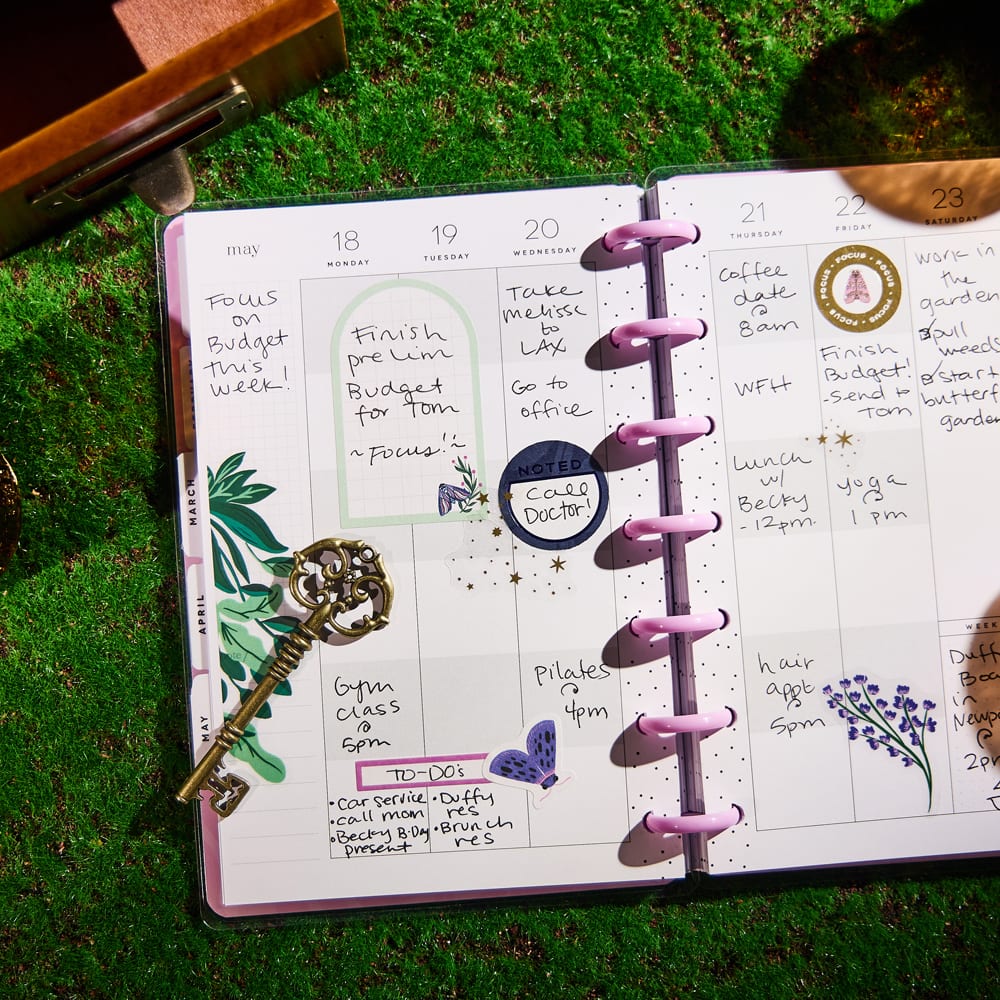 may
18
MONDAY
19
TUESDAY
20
WEDNESDAY
Focus
on
Budget
this
week!
Finish
prelim
Budget
for Tom
~Focus!~
Take
melissa
to
LAX
Go to
office
NOTED
Call
Doctor!
Gym
class
@
5pm
Pilates
@
4pm
TO-DO's
•car service
•call mom
•Becky B-Day
present
•Duffy
res
•Brunch
res
MARCH
APRIL
MAY
21
THURSDAY
22
FRIDAY
23
SATURDAY
coffee
date
@
8am
WFH
Lunch
w/
Becky
-12pm.
hair
appt
@
5pm
FOCUS • FOCUS • FOCUS • FOCUS •
Finish
Budget!
-send to
Tom
yoga
@
1 pm
work in
the
garden
pull
weeds
start
garden
WEEK
Duff
in
@
2p